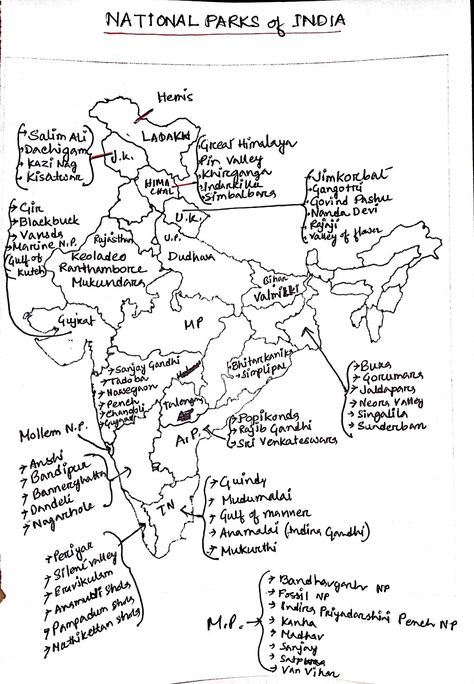 NATIONAL PARKS of INDIA
Hemis
LADAKH
J.K.
→ Salim Ali
→ Dachigam
→ Kazi Nag
→ Kisatwar
HIMA
CHAL
Great Himalaya
Pin Valley
Khirganga
Indarkilla
Simbalbara
U.K.
Jimkorbat
Gangotri
Govind Pashu
Nanda Devi
Rajaji
Valley of flower
→ Gir
→ Blackbuck
→ Vansda
→ Marine N.P.
Gulf of
Kutch
Gujrat
Rajasthan
Keoladeo
Ranthambore
Mukundara
U.P.
Dudhwa
Bihar
Valmiki
MP
→ Sanjay Gandhi
→ Tadoba
→ Navegaon
→ Pench
→ Chandoli
→ Gugamal
Bhitarkanika
Simplipal
Telangana
→ Buxa
→ Gorumara
→ Jaldapara
→ Neora Valley
→ Singalila
→ Sunderban
A.P.
→ Papikonda
→ Rajib Gandhi
→ Sri Venkateswara
Mollem N.P.
→ Anshi
→ Bandipur
→ Bannerghatta
→ Dandeli
→ Nagarhole
TN
→ Guindy
→ Mudumalai
→ Gulf of manner
→ Anamalai (Indira Gandhi)
→ Mukurthi
→ Periyar
→ Silent valley
→ Eravikulam
→ Anamudi Shola
→ Pampadum Shola
→ Mathikettan Shola
M.P.
→ Bandhavgarh NP
→ Fossil NP
→ Indira Priyadarshini Pench NP
→ Kanha
→ Madhav
→ Sanjay
→ Satpura
→ Van Vihar